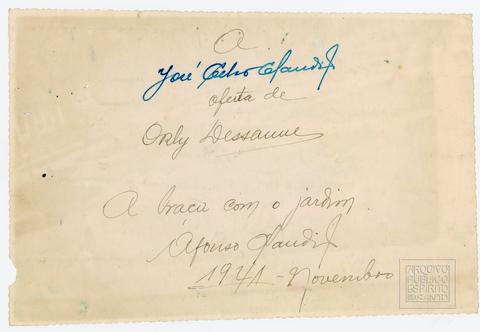 A
José Celso Claudio
oferta de
Orly Dessaune
A praça com o jardim.
Afonso Claudio
1941 - Novembro
ARQUIVO
PÚBLICO
ESPIRITO
SANTO